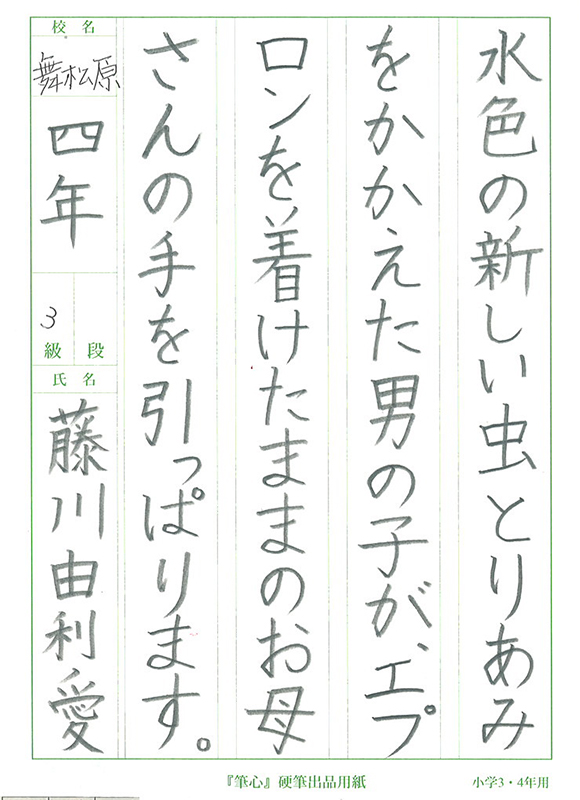 水色の新しい虫とりあみ
をかかえた男の子が、エプ
ロンを着けたままのお母
さんの手を引っぱります。
校名
舞松原
四年
3
級段
氏名
藤川由利愛
『筆心』硬筆出品用紙
小学3・4年用